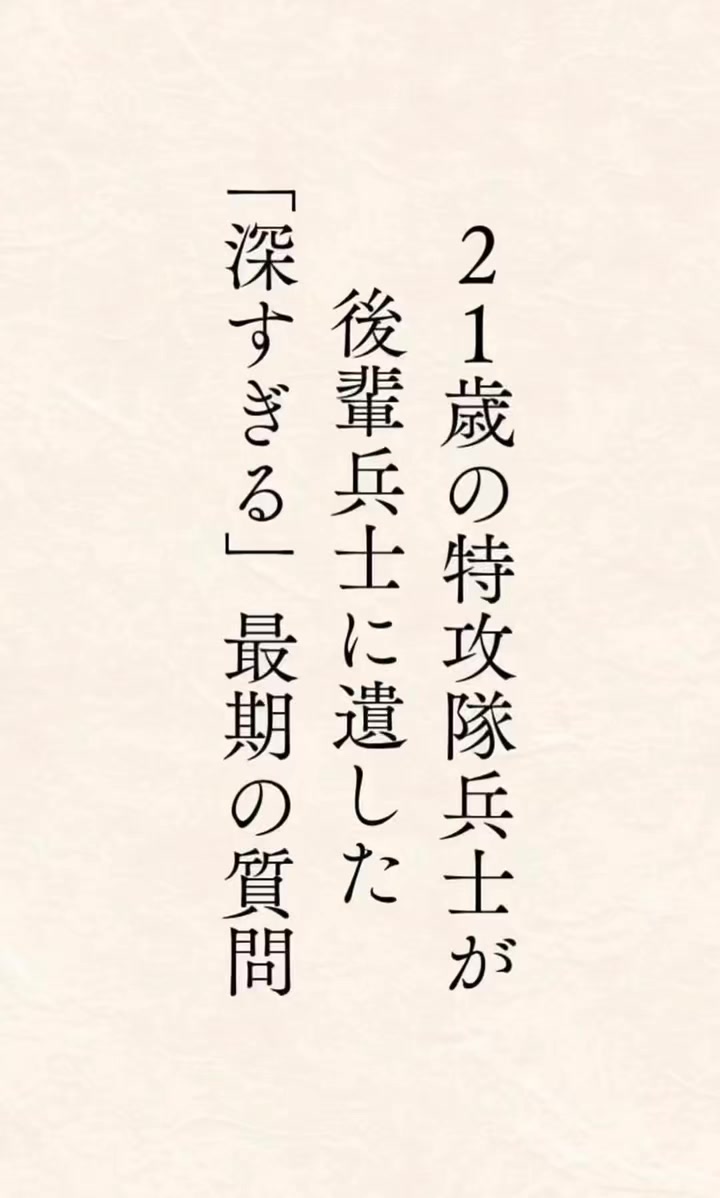 21歳の特攻隊兵士が
後輩兵士に遺した
「深すぎる」最期の質問